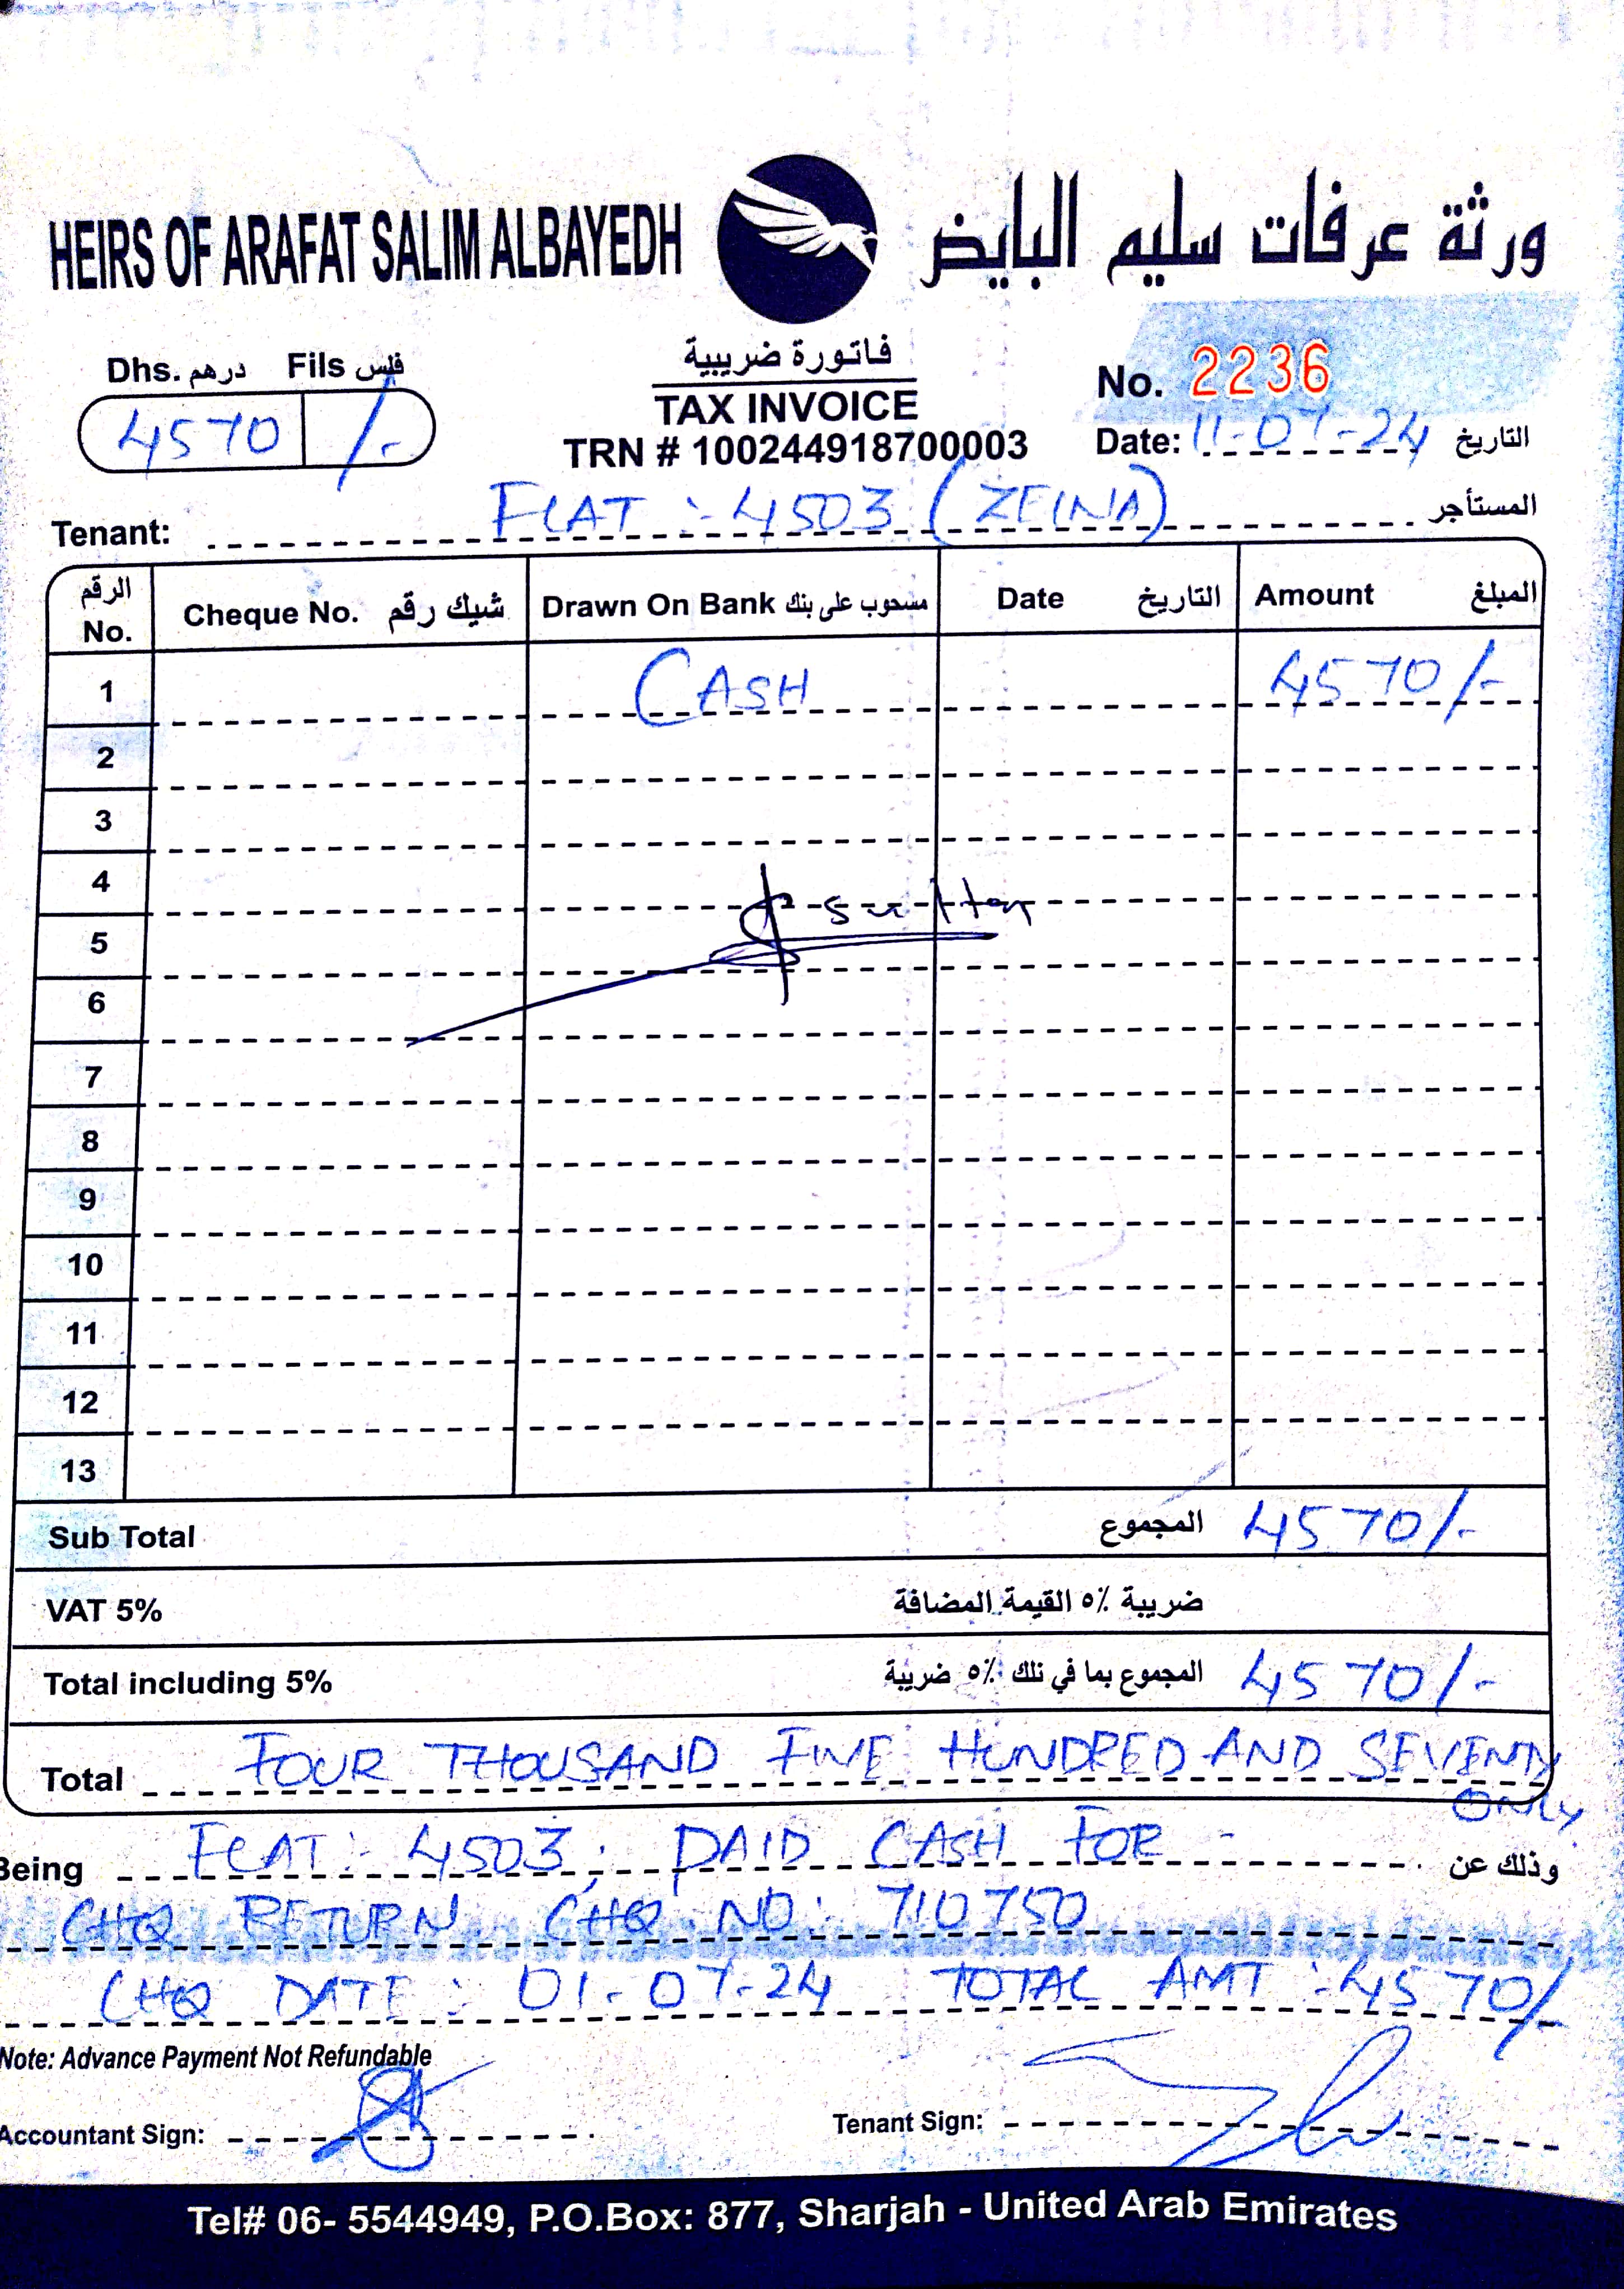 HEIRS OF ARAFAT SALIM ALBAYEDH ورثة عرفات سليم البايض
Dhs. درهم Fils فلس
4570 /-
فاتورة ضريبية
TAX INVOICE
TRN # 100244918700003
No. 2236
Date: 11-07-24 التاريخ
Tenant: FLAT :- 4503 (ZEINA) المستأجر
الرقم No. Cheque No. شيك رقم Drawn On Bank مسحوب على بنك Date التاريخ Amount المبلغ
1 CASH 4570/-
2
3
4
sultan
5
6
7
8
9
10
11
12
13
Sub Total المجموع 4570/-
VAT 5% ضريبة ٥٪ القيمة المضافة
Total including 5% المجموع بما في ذلك ٥٪ ضريبة 4570/-
Total FOUR THOUSAND FIVE HUNDRED AND SEVENTY
ONLY
Being FLAT :- 4503, PAID CASH FOR - وذلك عن
CHQ RETURN CHQ NO: 710750
CHQ DATE : 01-07-24 TOTAL AMT :- 4570/-
Note: Advance Payment Not Refundable
Accountant Sign: Tenant Sign:
Tel# 06- 5544949, P.O.Box: 877, Sharjah - United Arab Emirates